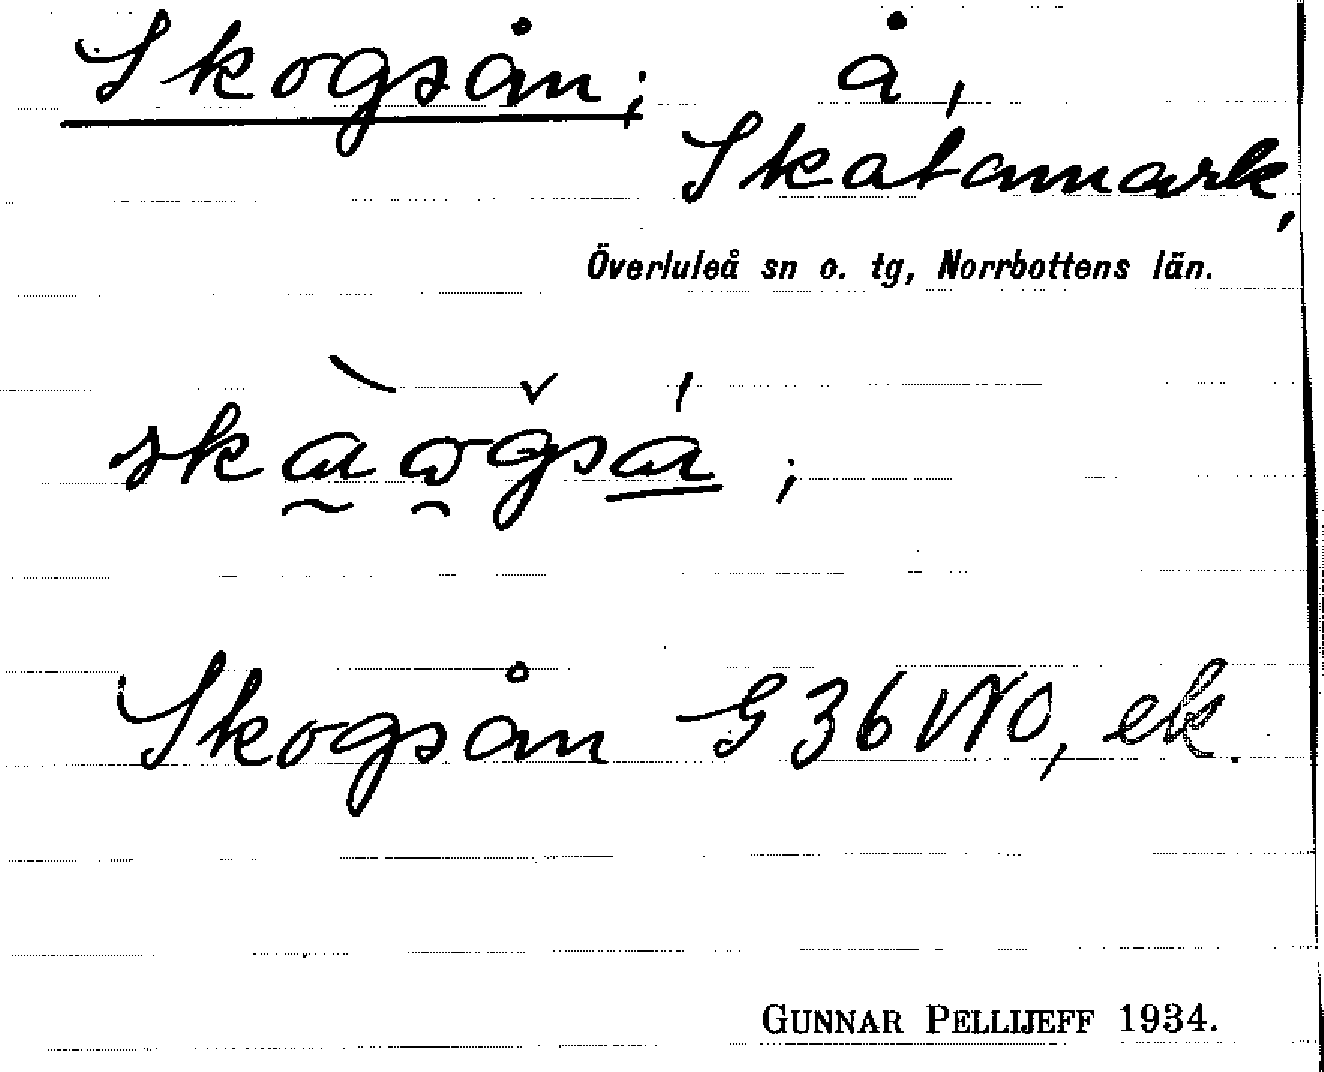 Skogsån; å,
Skatamark,
Överluleå sn o. tg, Norrbottens län.
Skogsån G 36 VNO, ek.
GUNNAR PELLIJEFF 1934.